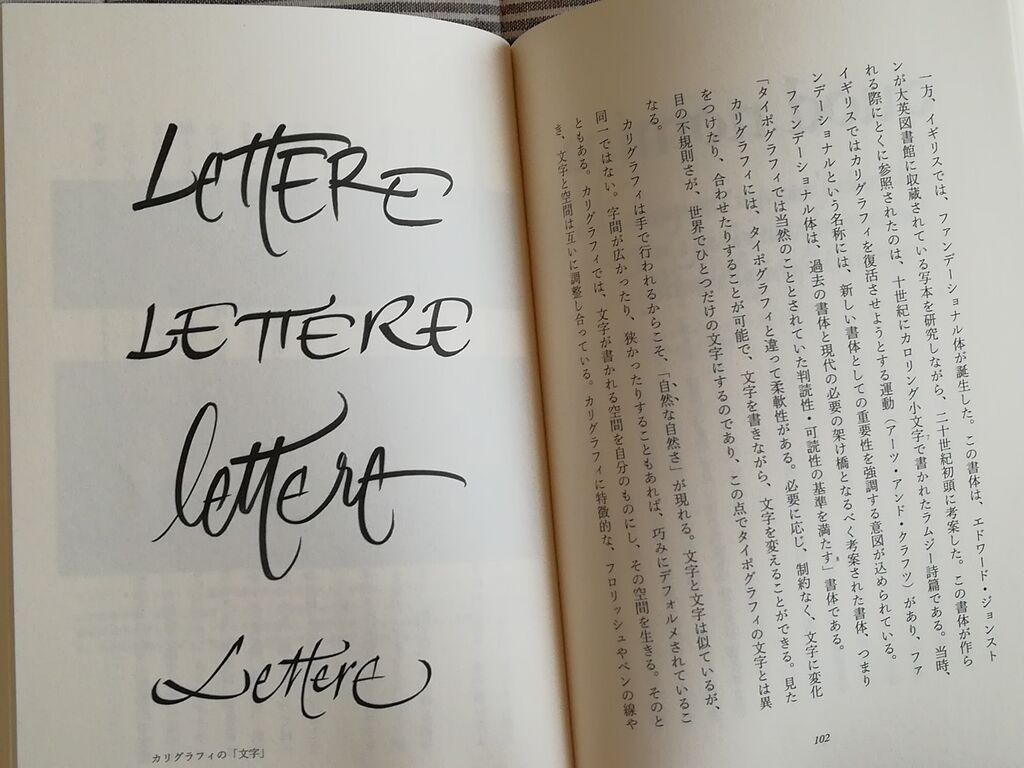 一方、イギリスでは、ファンデーショナル体が誕生した。この書体は、エドワード・ジョンスト
ンが大英図書館に収蔵されている写本を研究しながら、二十世紀初頭に考案した。この書体が作ら
れる際にとくに参照されたのは、十世紀にカロリング小文字で書かれたラムジー詩篇である。当時、
イギリスではカリグラフィを復活させようとする運動（アーツ・アンド・クラフツ）があり、ファ
ンデーショナルという名称には、新しい書体としての重要性を強調する意図が込められている。
ファンデーショナル体は、過去の書体と現代の必要の架け橋となるべく考案された書体、つまり
「タイポグラフィでは当然のこととされていた判読性・可読性の基準を満たす」書体である。
カリグラフィには、タイポグラフィと違って柔軟性がある。必要に応じ、制約なく、文字に変化
をつけたり、合わせたりすることが可能で、文字を書きながら、文字を変えることができる。見た
目の不規則さが、世界でひとつだけの文字にするのであり、この点でタイポグラフィの文字とは異
なる。
カリグラフィは手で行われるからこそ、「自然な自然さ」が現れる。文字と文字は似ているが、
同一ではない。字間が広かったり、狭かったりすることもあれば、巧みにデフォルメされているこ
ともある。カリグラフィでは、文字が書かれる空間を自分のものにし、その空間を生きる。そのと
き、文字と空間は互いに調整し合っている。カリグラフィに特徴的な、フロリッシュやペンの線や
102
LettERE
LETTERE
lettere
Lettere
カリグラフィの「文字」